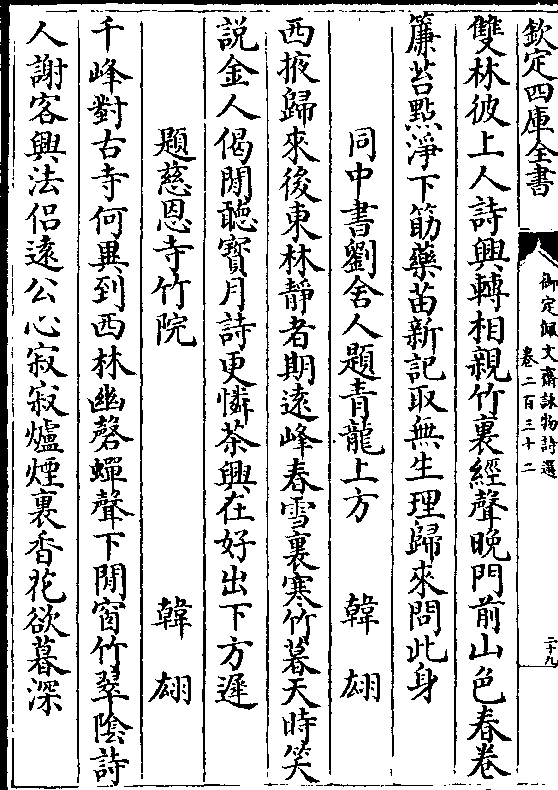 欽定四庫全書
御定佩文齋詠物詩選
卷二百三十二
二十九
雙林彼上人詩興轉相親竹裏經聲晚門前山色春卷
簾苔點淨下筯藥苗新記取無生理歸來問此身
同中書劉舍人題青龍上方 韓翃
西掖歸來後東林靜者期遠峰春雪裏寒竹暮天時笑
説金人偈閒聽寳月詩更憐茶興在好出下方遲
題慈恩寺竹院 韓翃
千峰對古寺何異到西林幽磬蟬聲下閒窗竹翠隂詩
人謝客興法侣逺公心寂寂爐煙裏香花欲暮深